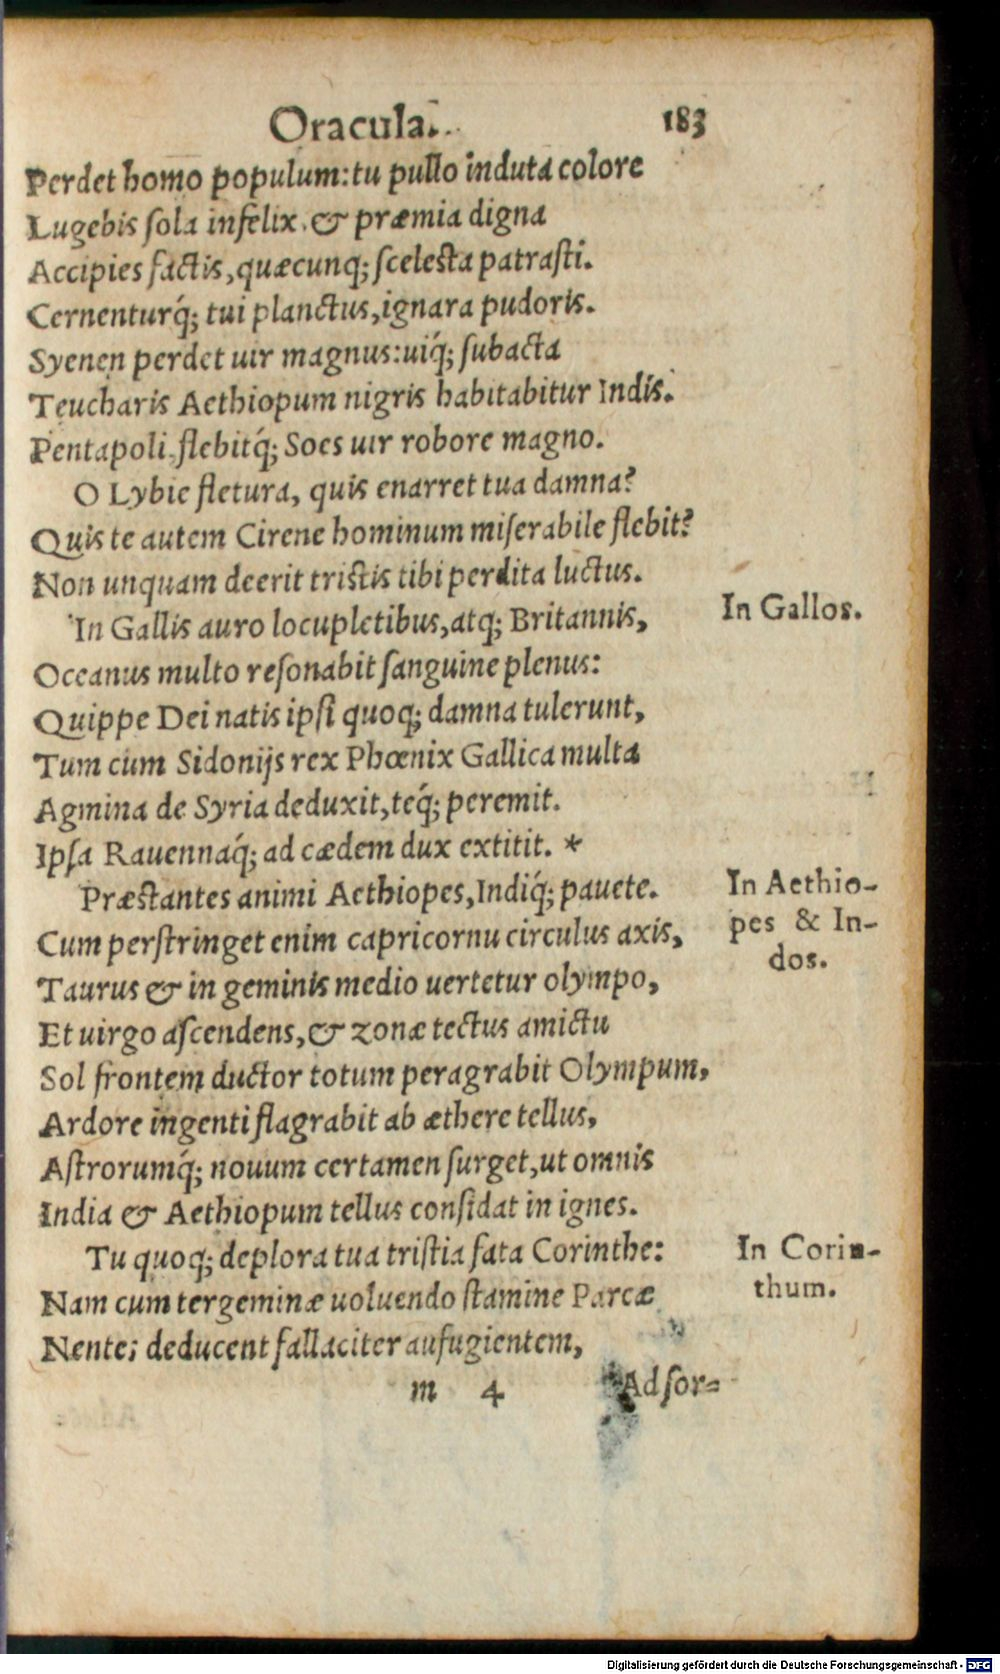 Oracula. 183
Perdet homo populum: tu pullo induta colore
Lugebis ſola infelix, & præmia digna
Accipies factis, quæcunq; ſceleſta patraſti.
Cernenturq́; tui planctus, ignara pudoris.
Syenen perdet uir magnus: uiq́; ſubacta
Teucharis Aethiopum nigris habitabitur Indis.
Pentapoli flebitq́; Soes uir robore magno.
O Lybie fletura, quis enarret tua damna?
Quis te autem Cirene hominum miſerabile flebit?
Non unquam deerit triſtis tibi perdita luctus.
In Gallis auro locupletibus, atq; Britannis,
In Gallos.
Oceanus multo reſonabit ſanguine plenus:
Quippe Dei natis ipſi quoq; damna tulerunt,
Tum cum Sidonijs rex Phœnix Gallica multa
Agmina de Syria deduxit, teq́; peremit.
Ipſa Rauennaq́; ad cædem dux extitit. *
Præſtantes animi Aethiopes, Indiq́; pauete.
In Aethio-
pes & In-
dos.
Cum perſtringet enim capricornu circulus axis,
Taurus & in geminis medio uertetur olympo,
Et uirgo aſcendens, & zonæ tectus amictu
Sol frontem ductor totum peragrabit Olympum,
Ardore ingenti flagrabit ab æthere tellus,
Aſtrorumq́; nouum certamen ſurget, ut omnis
India & Aethiopum tellus conſidat in ignes.
Tu quoq; deplora tua triſtia fata Corinthe:
In Corin-
thum.
Nam cum tergeminæ uoluendo ſtamine Parcæ
Nentes deducent fallaciter aufugientem,
m 4 Adſor-
Digitalisierung gefördert durch die Deutsche Forschungsgemeinschaft - DFG